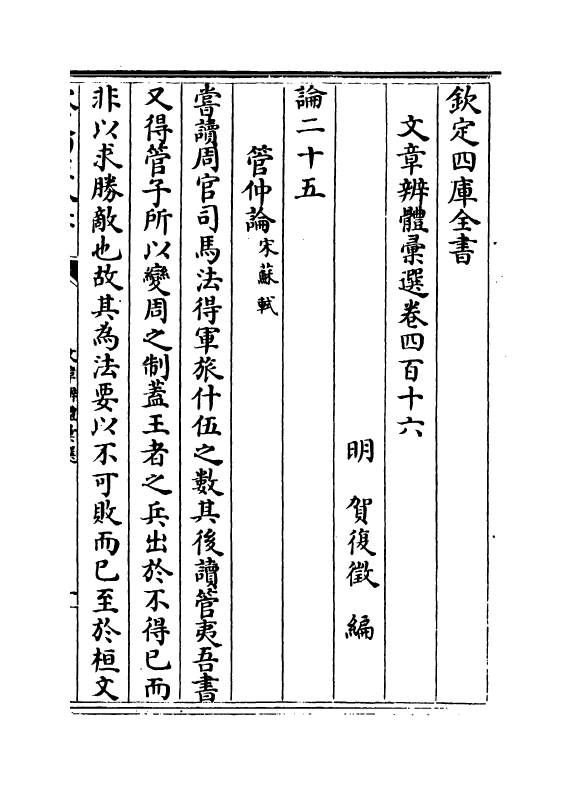 欽定四庫全書
文章辨體彙選卷四百十六
明　賀復徵　編
論二十五
管仲論宋蘇軾
嘗讀周官司馬法得軍旅什伍之數其後讀管夷吾書
又得管子所以變周之制蓋王者之兵出於不得已而
非以求勝敵也故其為法要以不可敗而已至於桓文
文章辨體彙選